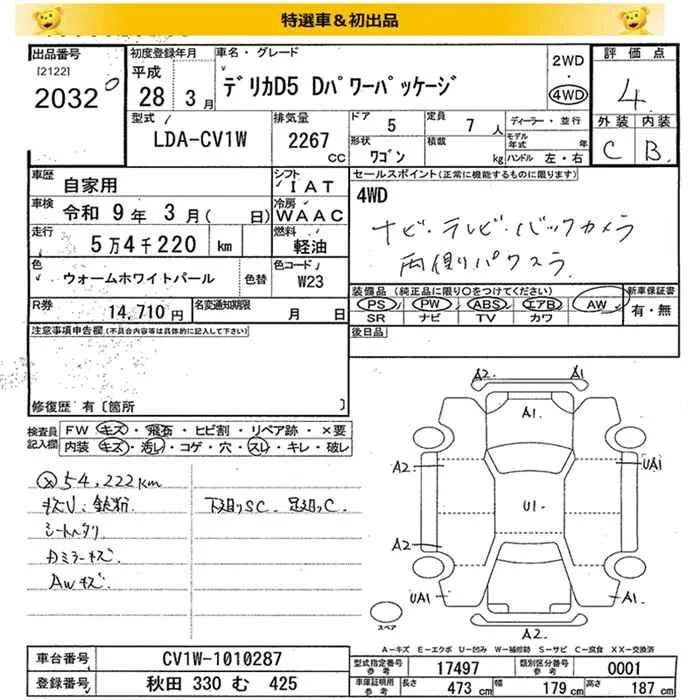 特選車＆初出品
出品番号
[2122]
2032
初度登録年月
平成
28 3月
車名・グレード
デリカD5 Dパワーパッケージ
2WD
・
4WD
評価点
4
外装 内装
C B
型式
LDA-CV1W
排気量
2267
CC
ドア 5
定員 7 人
ディーラー・並行
形状 ワゴン
積載 kg
モデル年式 年
ハンドル 左・右
車歴 自家用
シフト IAT
車検 令和 9年 3月( 日)
冷房 WAAC
走行 5万4千220 km
燃料 軽油
色 ウォームホワイトパール
色替
色コード W23
R券 14,710円
名変通知期限 月 日
セールスポイント(正常に機能するものに限ります)
4WD
ナビ・テレビ・バックカメラ
両側パワスラ
装備品 (純正品に限り〇をつけてください)
PS PW ABS エアB AW
SR ナビ TV カワ
新車保証書
有・無
後日品
注意事項申告欄(不具合内容等は具体的に記入して下さい)
修復歴 有〔箇所 〕
検査員記入欄
FW キズ・飛石・ヒビ割・リペア跡・×要
内装 キズ・汚レ・コゲ・穴・スレ・キレ・破レ
54,222km
キズU・鉄粉 下廻りSC. 足廻りC.
シートヘタリ
カミラーキズ
AWキズ
A2 A1
A1
A2 UA1
U1
A2
UA1 A1
A2
スペア
A－キズ E－エクボ U－凹み W－補修跡 S－サビ C－腐食 XX－交換済
車台番号 CV1W-1010287
登録番号 秋田 330 む 425
型式指定番号 参考 17497
類別区分番号 参考 0001
車庫証明用 参考 長さ 473 cm 幅 179 cm 高さ 187 cm